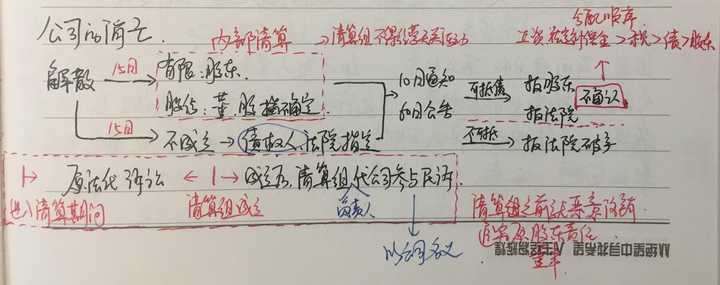 公司的消亡
内部清算 → 清算组不得经营无关活动
分配顺序
工资 社会 补偿金 > 税 > 债 > 股东
解散 15日 有限:股东
股份:董 股 指确定
10日通知
60日公告
可抵债 报股东
报法院 不确认
15日 不成立 → 债权人 法院指定
不可抵 报法院破产
原法代诉讼 ← → 成立后,清算组代公司参与民诉
进入清算期间 清算组成立 负责人
以公司名义
清算组之前
追究原股东责任
董事
从绝望中寻找希望 人生终将辉煌